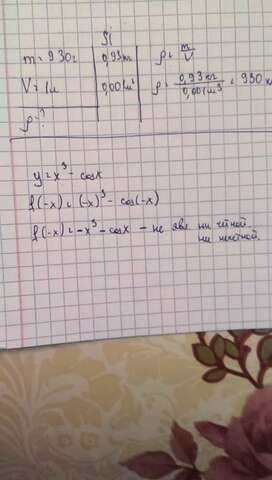 Si
m = 930г 0,93кг ρ = m/V
V = 1л 0,001м³ ρ = 0,93кг/0,001м³ = 930
ρ - ?
y = x³ - cosx
f(-x) = (-x)³ - cos(-x)
f(-x) = -x³ - cosx - не явл ни чётной
ни нечётной.